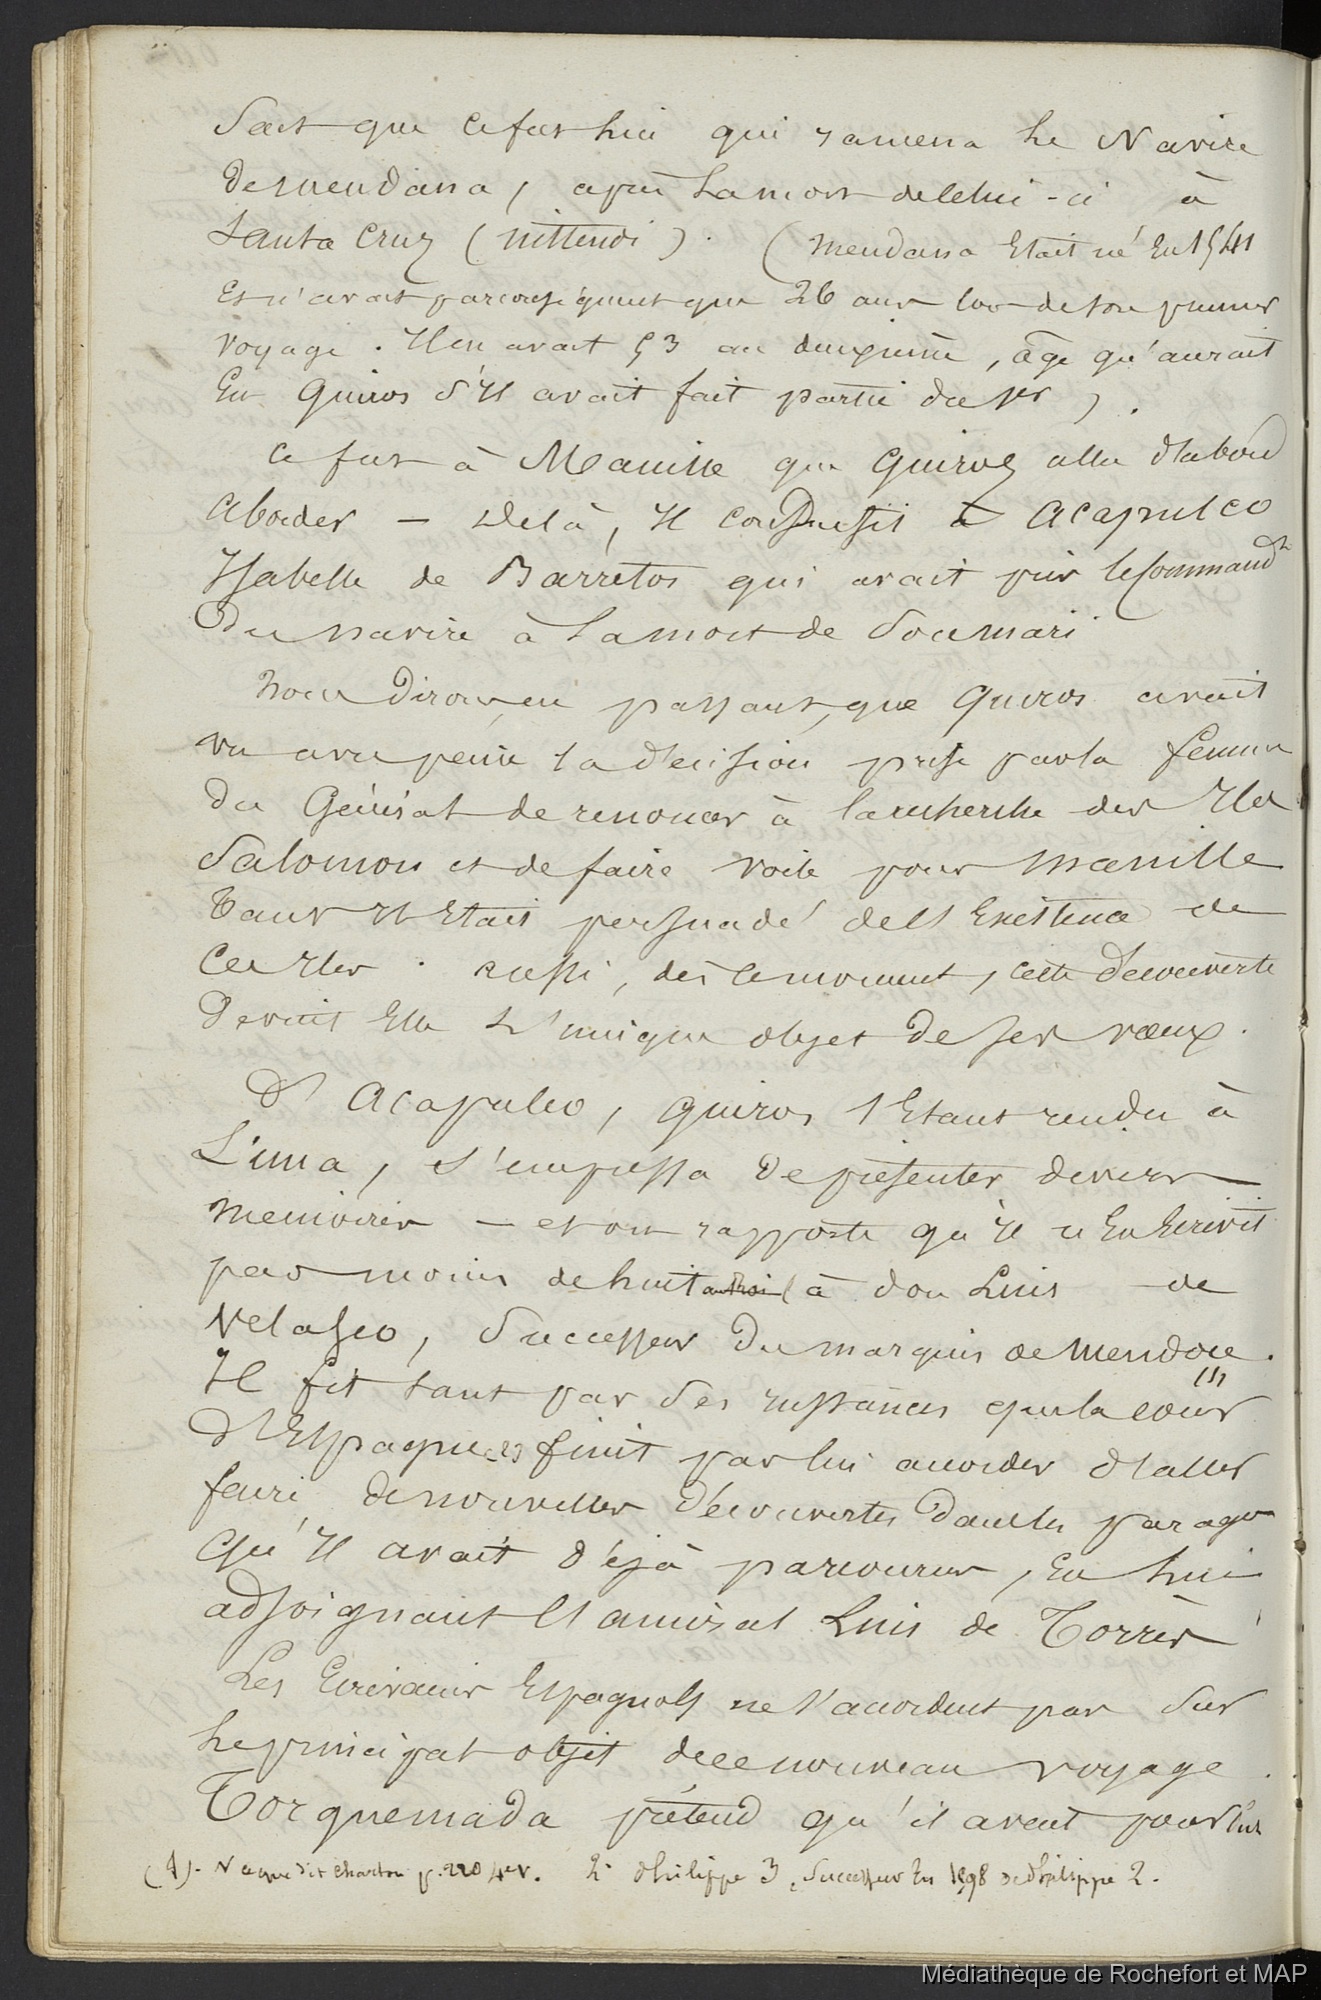 Sait que ce fut lui qui ramena le Navire
de mendana, après la mort de celui-ci à
Santa Cruz (nittendi). (mendana Etait né En 1541
et n'avait par conséquent que 26 ans lors de son premier
voyage. Il en avait 53 au deuxième, âge qu'aurait
Eu Quiros s'Il avait fait partie du 1er).
Ce fut à Manille que Quiros alla d'abord
aborder — De là, Il conduisit à Acapulco
Isabelle de Barretos qui avait pris le Commandt
Du navire à la mort de Son mari
Nous dirons, en passant, que Quiros avait
vu avec peine la décision prise par la femme
du Général de renoncer à la recherche des Iles
Salomon et de faire voile pour Manille
Tant Il Etait persuadé de l'Existence de
Ces Iles. aussi, dès ce moment, cette découverte
devint Elle L'unique objet de ses vœux.
D'Acapulco, Quiros s'Etant rendu à
Lima, s'empressa De présenter divers
memoires — et on rapporte qu'Il n'En Ecrivit
pas moins de huit à don Luis de
Velasco, Successeur Du marquis de Mendoce.
Il fit tant par Ses Instances que la cour (1)
d'Espagne (2) finit par lui accorder d'aller
faire de nouvelles Découvertes Dans les parages
Qu'Il avait déjà parcourus, En lui
adjoignant l'amiral Luis de Torrès
Les Ecrivains Espagnols ne s'accordent pas Sur
Le principal objet de ce nouveau voyage.
Torquemada prétend qu'il avait pour but
(1). Vaque dit Charton p. 220 4e v. 2° Philippe 3, Successeur En 1598 de Philippe 2.
Médiathèque de Rochefort et MAP